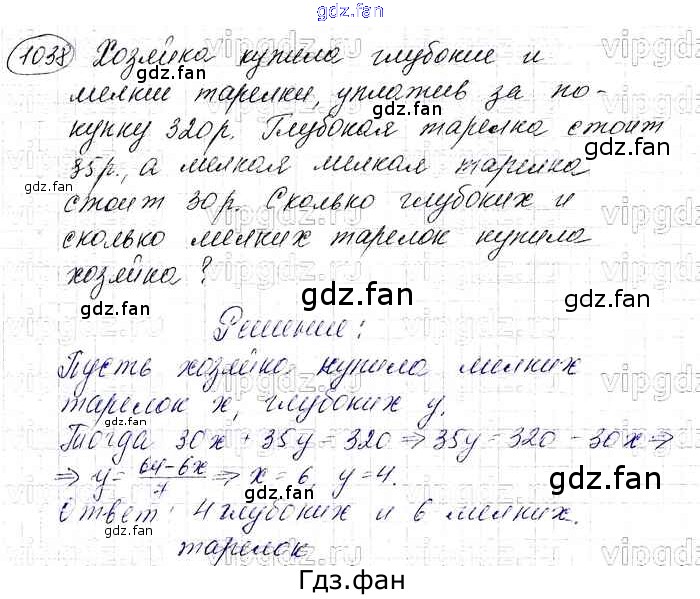 gdz.fan
1038 Хозяйка купила глубокие и
мелкие тарелки, уплатив за по-
купку 320р. Глубокая тарелка стоит
35р., а мелкая мелкая тарелка
стоит 30р. Сколько глубоких и
сколько мелких тарелок купила
хозяйка?
Решение:
Пусть хозяйка купила мелких
тарелок x, глубоких y.
Тогда 30x + 35y = 320 ⇒ 35y = 320 - 30x ⇒
⇒ y = 64-6x/7 ⇒ x = 6, y = 4.
Ответ: 4 глубоких и 6 мелких.
тарелок
Гдз.фан